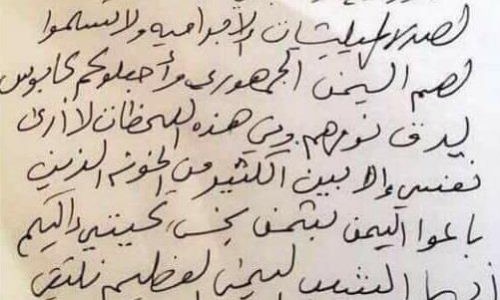 لهذه المليشيات الإجرامية ولا تسلموا
لهم اليمن الجمهوري وأجعلوكم كابوس
يؤرق نومهم وفي هذه اللحظات لا أرى
نفسي إلا بين الكثير من الخونه الذين
باعوا اليمن بثمن بخس تحيتي إليكم
أيها الشعب اليمني العظيم نلتقي